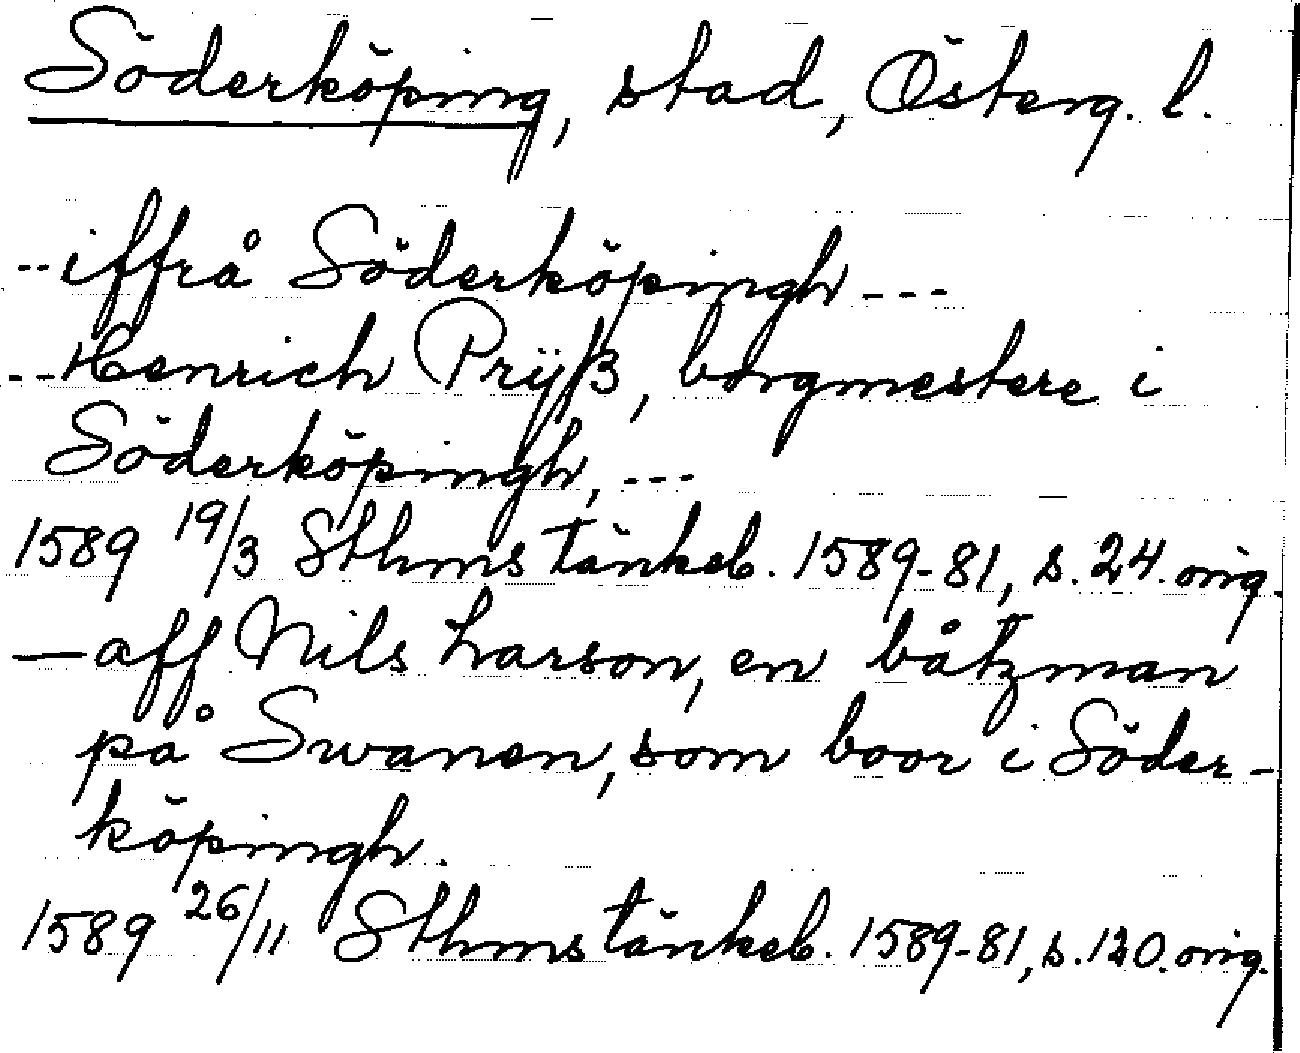 Söderköping, stad, Österg. l.
-- iffrå Söderköpingh ---
-- Henrich Prÿß, borgmestere i
Söderköpingh, ---
1589 19/3 Sthms tänkeb. 1589-81, s. 24. orig.
— aff Nils Larson, en båtzman
på Swanen, som boor i Söder-
köpingh.
1589 26/11 Sthms tänkeb. 1589-81, s. 120. orig.